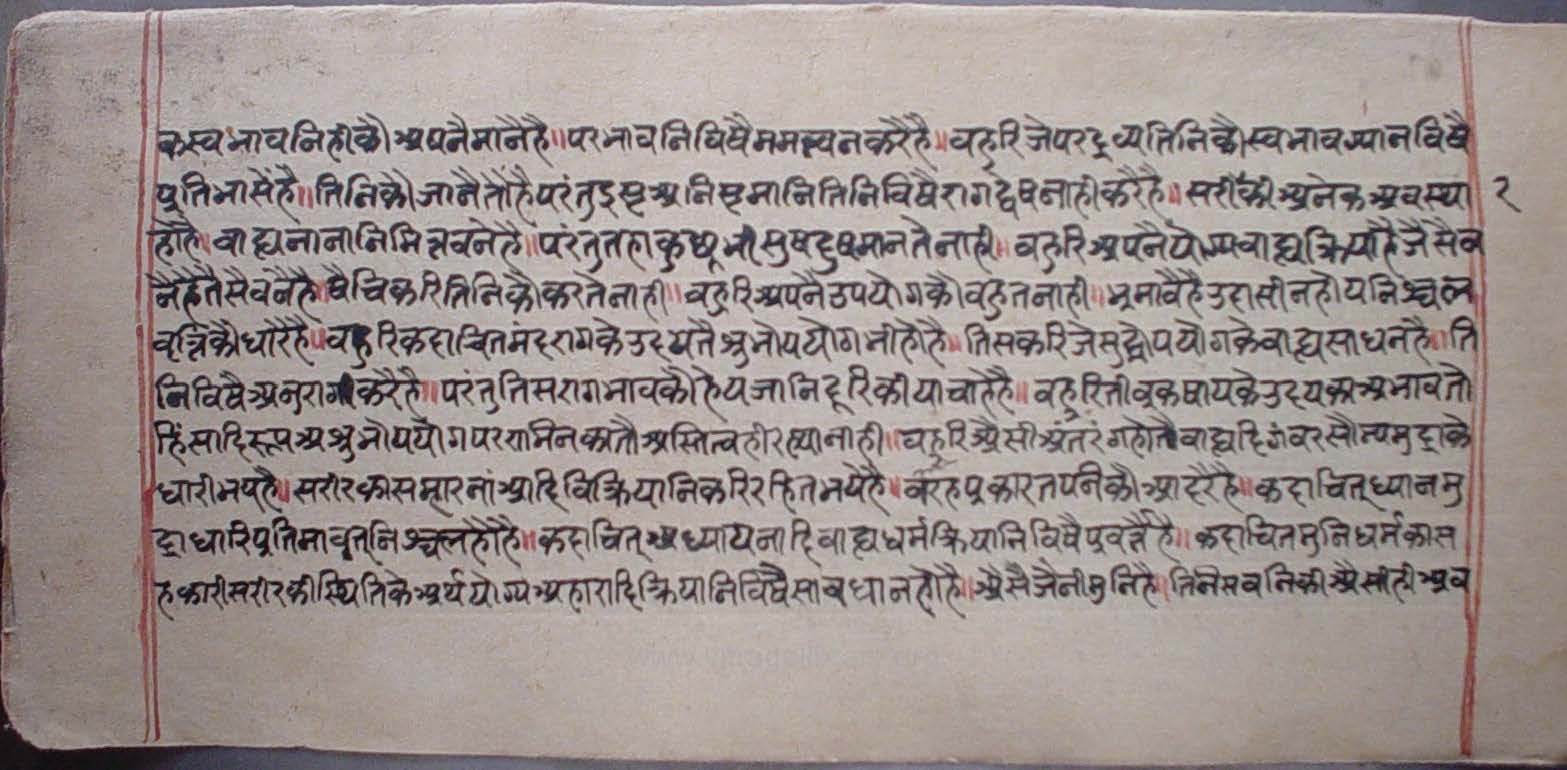 कस्वभावनिहीकौ अपनैमानैहै॥परभावनिविषैममत्वनकरैहै॥वहुरिजेपरद्रव्यतिनिकौस्वभावग्यानविषै
प्रतिभासैंहै॥तिनिकौजानैतौहैपरंतुइसृअनिसृमानितिनिविषैरागद्वेषनाहीकरैहै॥सरीरकीअनेकअवस्था
२
होहै॥वाह्यनानानिमित्तवनैहै॥परंतुतहाकुछूभीसुषदुषमानतेनाही॥वहुरिअपनैयोग्यवाह्यक्रियाहैजैसैव
नैहैतैसैवनैहै॥षैचिकरितिनिकौकरतेनाही॥वहुरिअपनैउपयोगकौवहुतनाही॥भ्रमावैहैउदासीनहोयनिश्चल
वृत्तिकौधारैहै॥वहुरिकदाचितमंदरागकेउदयतैशुभोपयोगभीहोहै॥तिसकरिजेसुद्धोपयोगकेवाह्यसाधनहै॥ति
निविषैअनुरागकरैहै॥परंतुतिसरागभावकौहेयजानिदूरिकीयाचाहैहै॥वहुरितीव्रकषायकेउदयकाअभावतो
हिंसादिरूपअशुभोपयोगपरणमिनकातौअस्तित्वहीरह्यानाही॥वहुरिअैसीअंतरंगहोतैवाह्यदिगंवरसौम्यमुद्राके
धारीभएहै॥सरीरकासमारनांआदिविक्रियानिकरिरहितभयेहै॥
द्राधारिप्रतिमावत्निश्चलहोहै॥कदाचित्अध्यायनादिवाह्यधर्मक्रियानिविषैप्रवर्त्तैहै॥कदाचितमुनिधर्मकास
हकारीसरीरकीस्थितिकेअर्थयोग्यअहारादिक्रियानिविषैसावधानहोहै॥अैसैजैनीमुनिहै॥तिनिसवनिकीअैसीहीअव